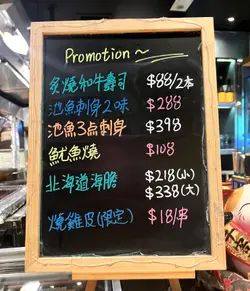 Promotion~
炙燒和牛壽司 $88/2本
池魚刺身2味 $288
池魚3点刺身 $398
魷魚燒 $108
北海道海膽 $218(小)
$338(大)
燒雞皮(限定) $18/串